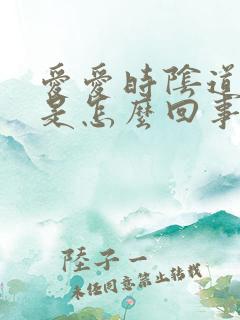 愛愛時陰道
是怎麼回事
陸子一
未經同意禁止轉載